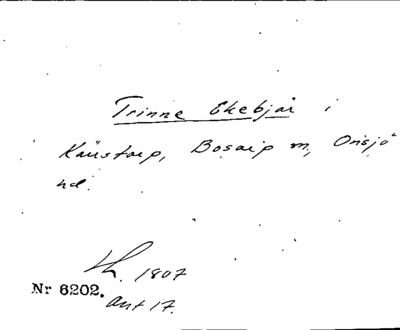 Trinne Ekebjär i
Käustarp, Bosarp m, Onsjö
hd.
th. 1807
Nr 6202.
ant 17.